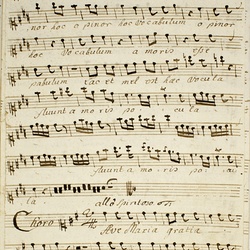 nor hoc o pinor hoc Vocabulum o pinor
hoc Vocabulum amoris est
cabulum tac et mel est hac Vocula
fluunt amoris po cula
fluunt amoris po
la. allo Spiritoso
Choro Ave Maria gratia